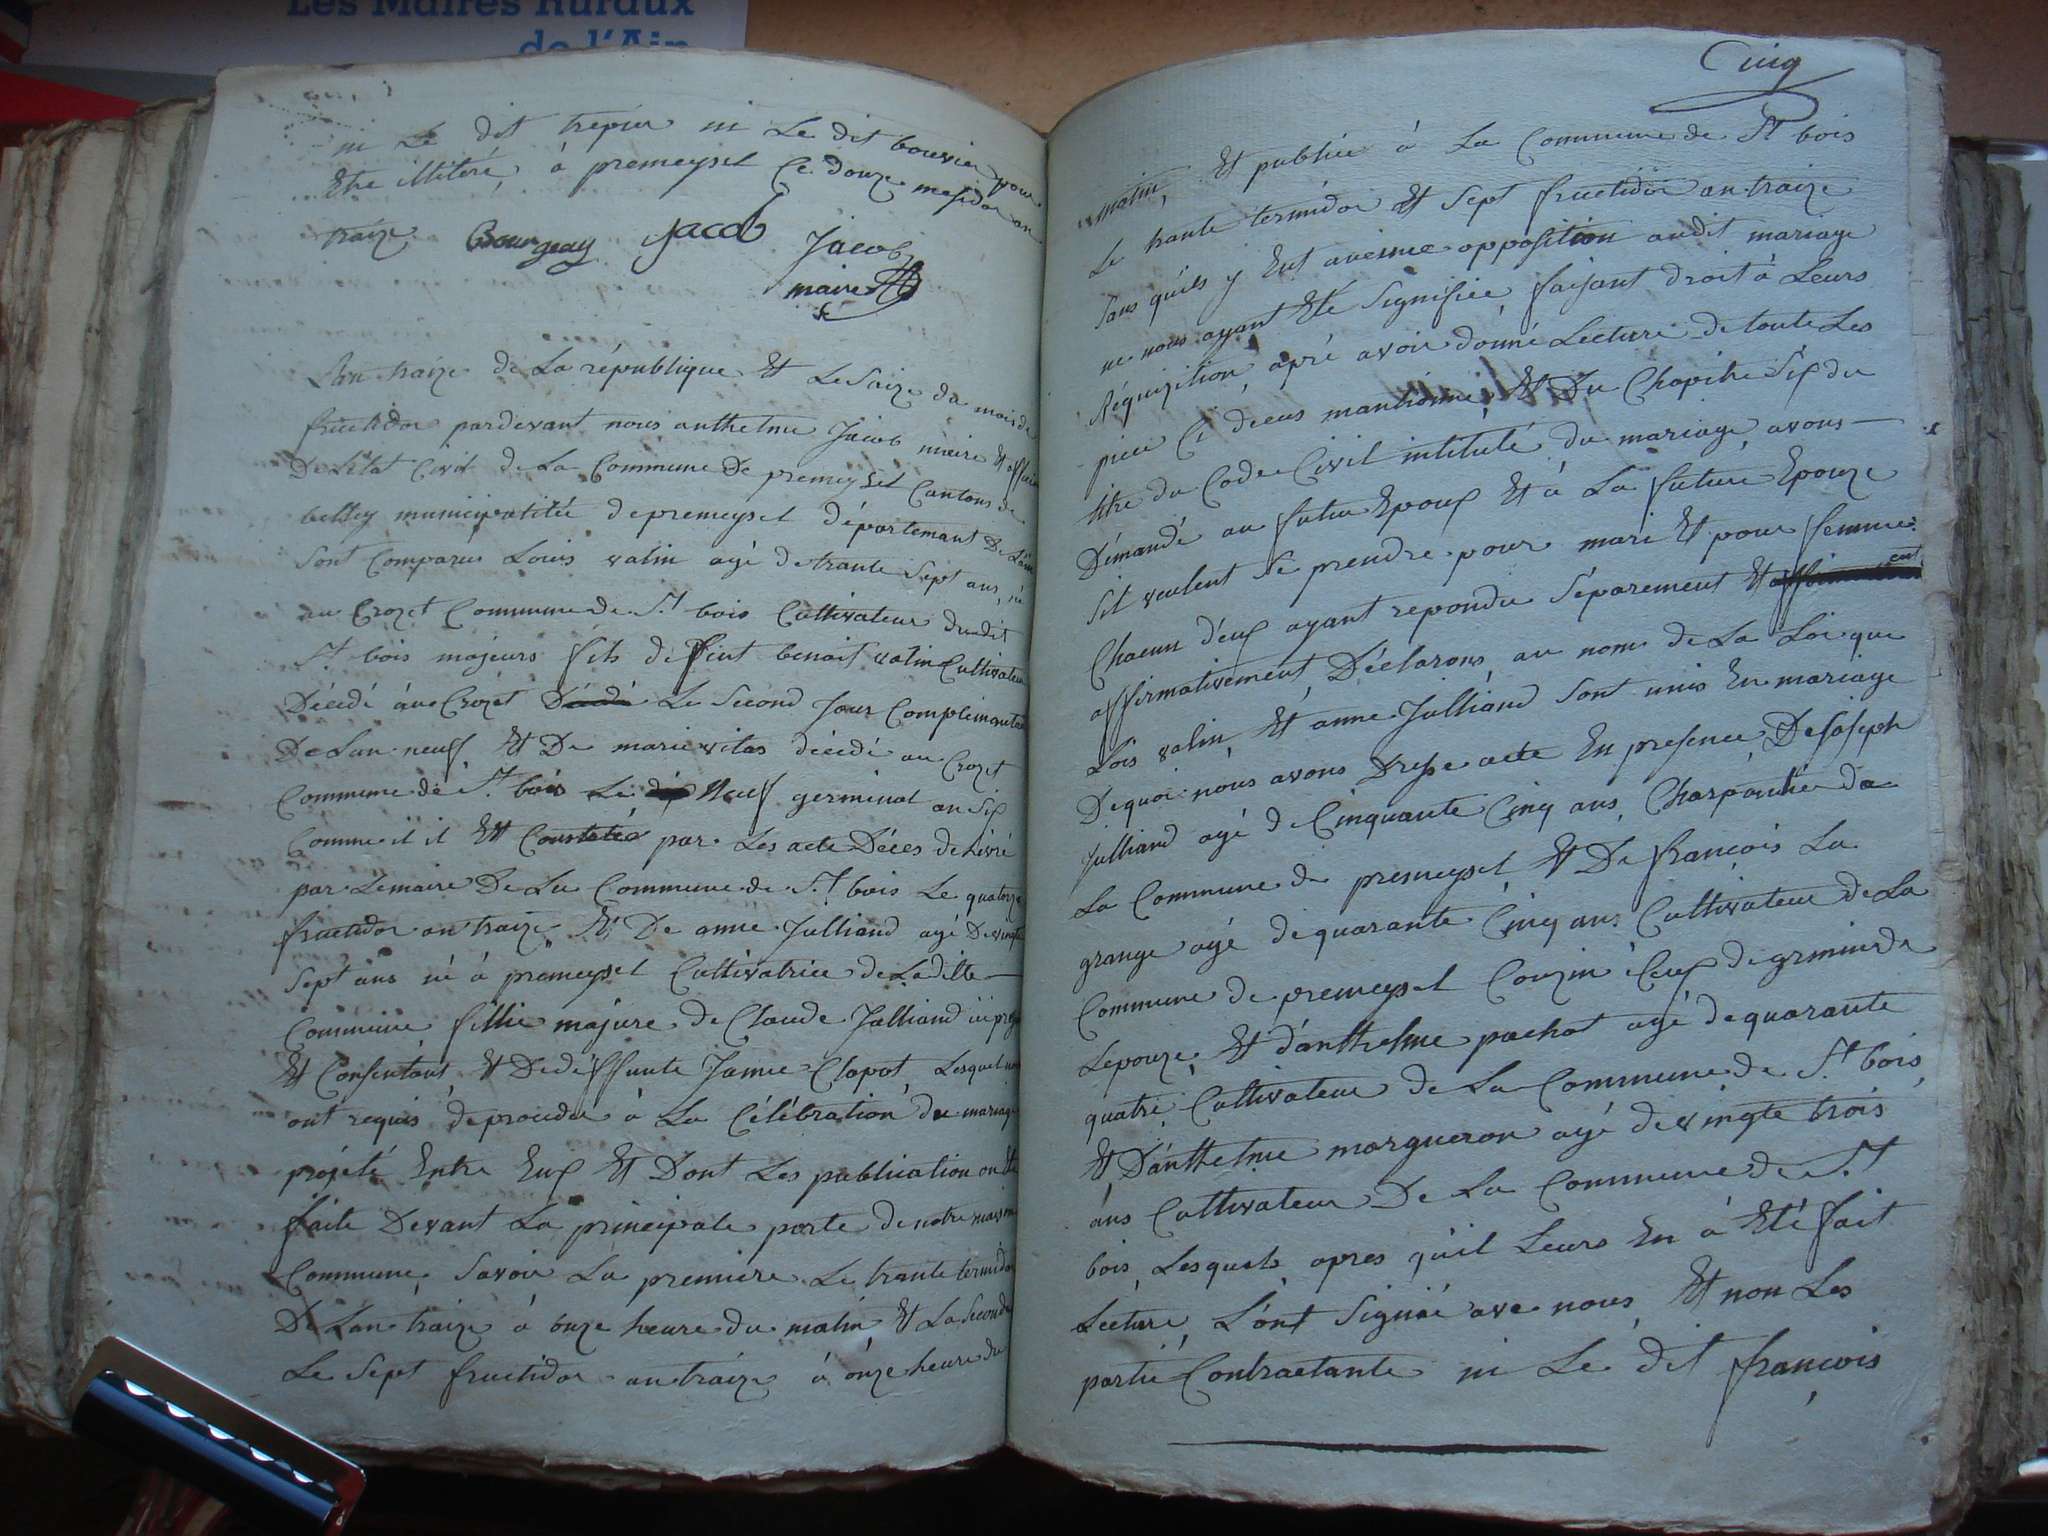 Les Maires Ruraux
de l'Ain
ni Le dit trepier ni Le dit bouvier pour
Etre illiteré, à premeysel Ce douze mesidor an
traize Bourgeay Jacob Jacob
maire
Lan traize de La république Et Le Saize du mois de
fructidor pardevant nous anthelme Jacob maire Et officier
De Létat Civil de La Commune De premeysel Cantons de
belley municipatité de premeysel département De Lain
Sont Comparu Louis valin agé de trante Sept ans, né
au Crozet Commune de St bois Cultivateur dudit
St bois majeurs fils deffunt benoit valin Cultivateur
Décédé au Crozet Le Second Jour Complimantaire
De Lan neuf Et De marie vitas décédé au Crozet
Commune de St bois Le Neuf germinal an Six
Comme il it Et Constatée par Les acte Décès delivré
par Le maire De La Commune de St bois Le quatorze
fructidor an traize Et De anne Julliand agé De vingte
Sept ans né à premeysel Cultivatrice de La ditte
Commune fillie majure de Claude Julliand ici
Et Consentant Et De deffunte Jamie Clapot, Lesquel nous
ont requis de proceder à La Célébration du mariage
projeté Entre Eux Et Dont Les publication on Eté
faite Devant La principale porte de notre maison
Commune Savoir La premiere Le trante termidor
De Lan traize à onze heure du matin Et La Seconde
Le Sept fructidor an traize à onze heure du
Cinq
matin, Et publiée à La Commune de St bois
Le trante termidor Et Sept fructidor an traize
Sans quils y Eut aucune opposition audit mariage
ne nous ayant Eté Signifiée faisant droit à Leurs
Réquizition, apré avoir donné Lecture de toute Les
piece Ci decus mantionné, Et Du Chapitre Six du
titre du Code Civil intitulé du mariage, avons
Démandé au futur Epoux Et à La future Epouze
Sil veulent Se prendre pour mari Et pour femme
Chacun d'eux ayant repondu Séparement Et
affirmativement Déclarons au nom de La Loi que
Lois valin, Et anne Julliand Sont unis En mariage
De quoi nous avons Dressé acte En presence De Joseph
Julliand agé de Cinquante Cinq ans, Charpantié de
La Commune de premeysel Et De francois La
grange agé de quarante Cinq ans Cultivateur de La
Commune de premeysel Couzin
Lepouze, Et d'anthelme pachot agé de quarante
quatre, Cultivateur de La Commune de St bois,
Et D'anthelme margueron agé de vingte trois
ans Cultivateur De La Commune de St
bois, Lesquels apres quil Leurs En à Eté fait
Lecture, L'ont Signié ave nous, Et non Les
partie Contractante ni Le dit françois